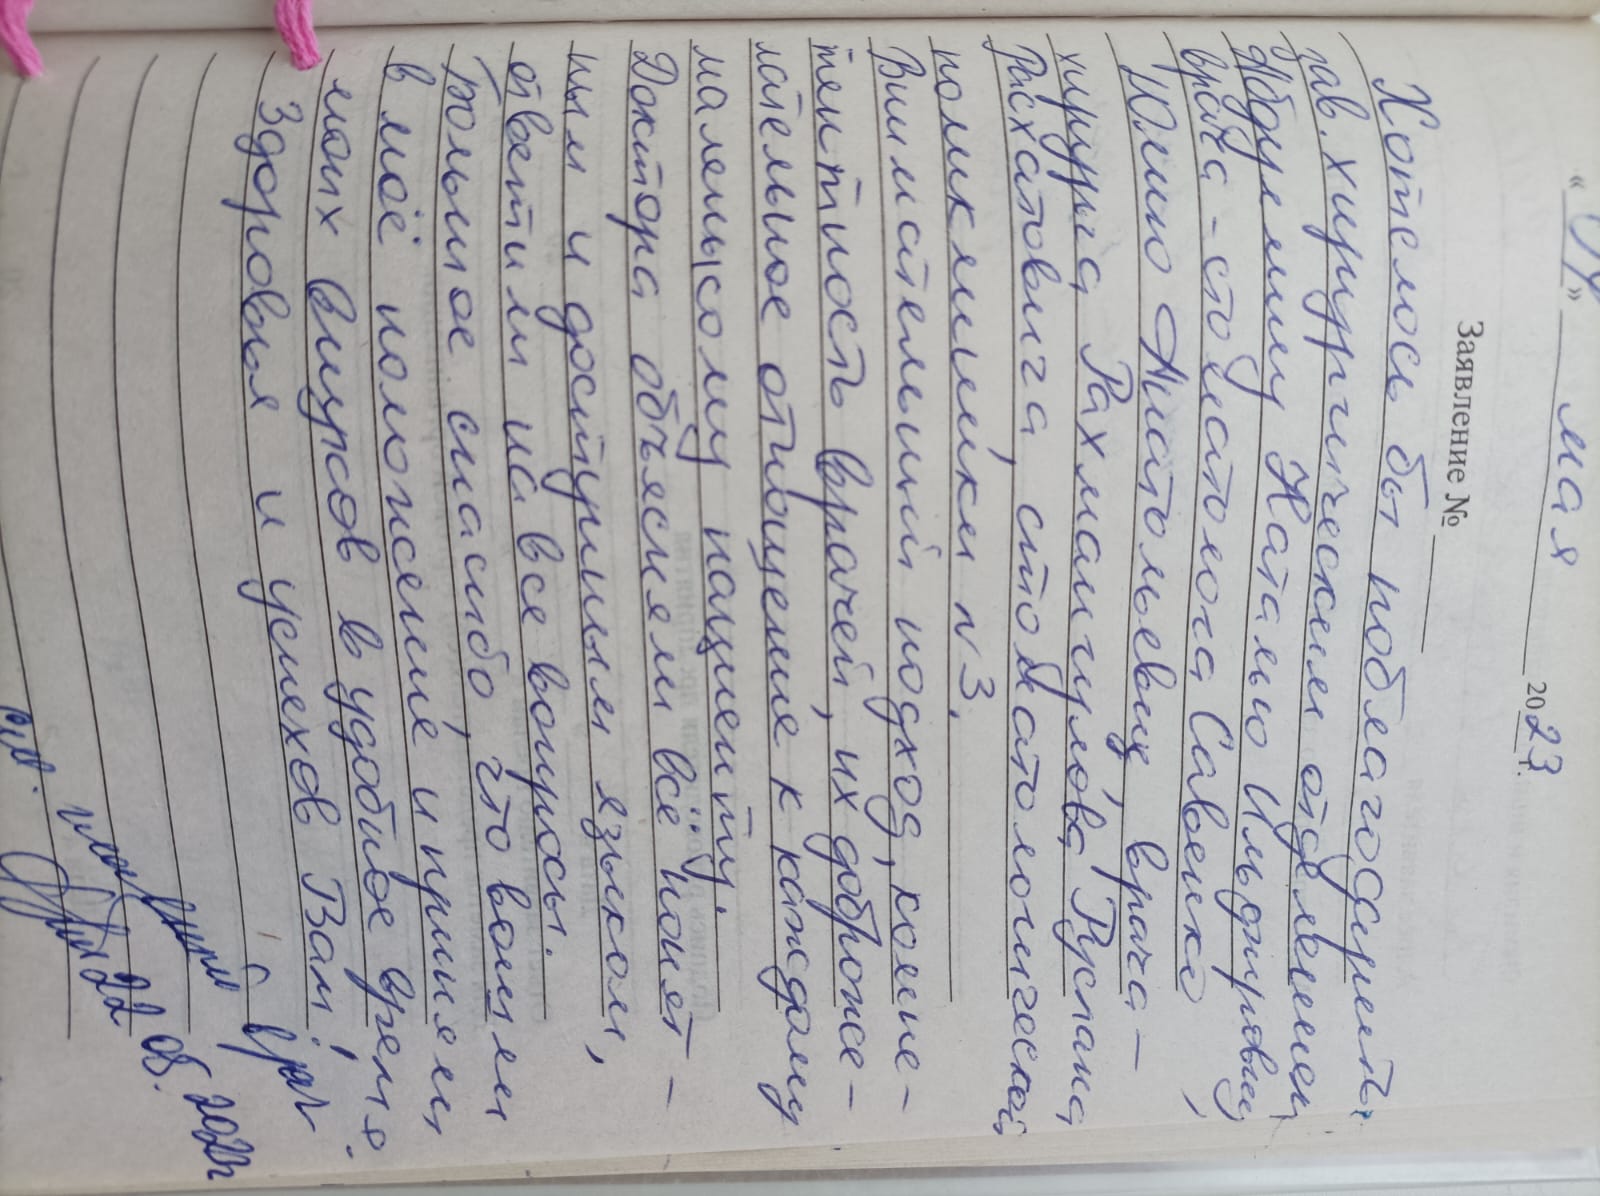 мая 2023 г.
Заявление №
Хотелось бы поблагодарить
зав. хирургическим отделением
Абдуллину Наталью Ильдируовну
врача-стоматолога Савенко
Юлию Анатольевну, врача-
хирурга Рахмангулова Руслана
Расхатовича, стоматологической
поликлиники N3.
Внимательный подход, компе-
тентность врачей, их доброже-
лательное отношение к каждому
маленькому пациенту.
Доктора объясняли всё понят-
ным и доступным языком,
ответили на все вопросы.
Большое спасибо, что вошли
в моё положение и приняли
моих внуков в удобное время.
Здоровья и успехов Вам!